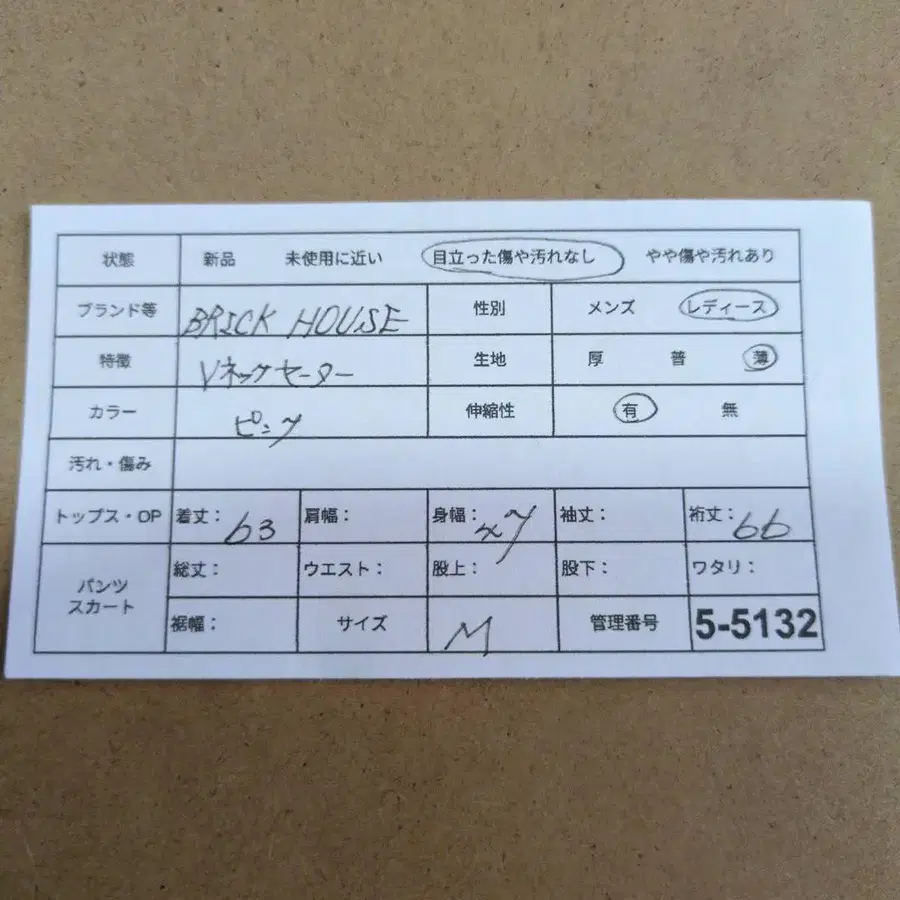 状態 新品 未使用に近い 目立った傷や汚れなし やや傷や汚れあり
ブランド等 BRICK HOUSE 性別 メンズ レディース
特徴 Vネックセーター 生地 厚 普 薄
カラー ピンク 伸縮性 有 無
汚れ・傷み
トップス・OP 着丈: 63 肩幅: 身幅: 47 袖丈: 裄丈: 66
パンツ スカート 総丈: ウエスト: 股上: 股下: ワタリ:
裾幅: サイズ M 管理番号 5-5132